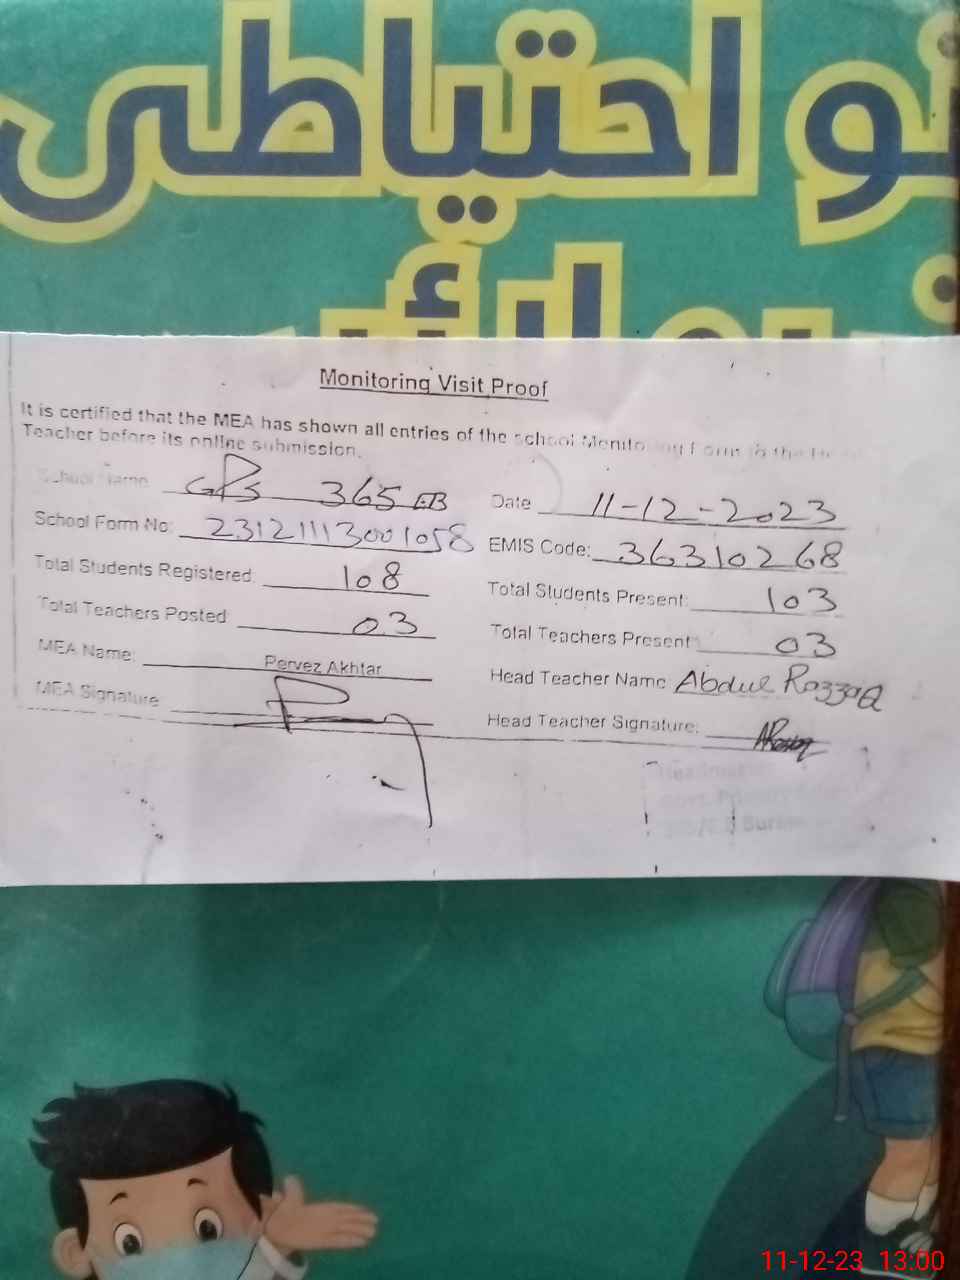 احتیاطی
Monitoring Visit Proof
It is certified that the MEA has shown all entries of the school Monitoring Form to the Head
Teacher before its online submission.
School Name GPS 365 EB
Date 11-12-2023
School Form No: 23121113001058
EMIS Code: 36310268
Total Students Registered: 108
Total Students Present: 103
Total Teachers Posted 03
Total Teachers Present 03
MEA Name: Pervez Akhtar
Head Teacher Name Abdul Razzaq
MEA Signature
Head Teacher Signature: ARazzaq
Govt. Primary
11-12-23 13:00